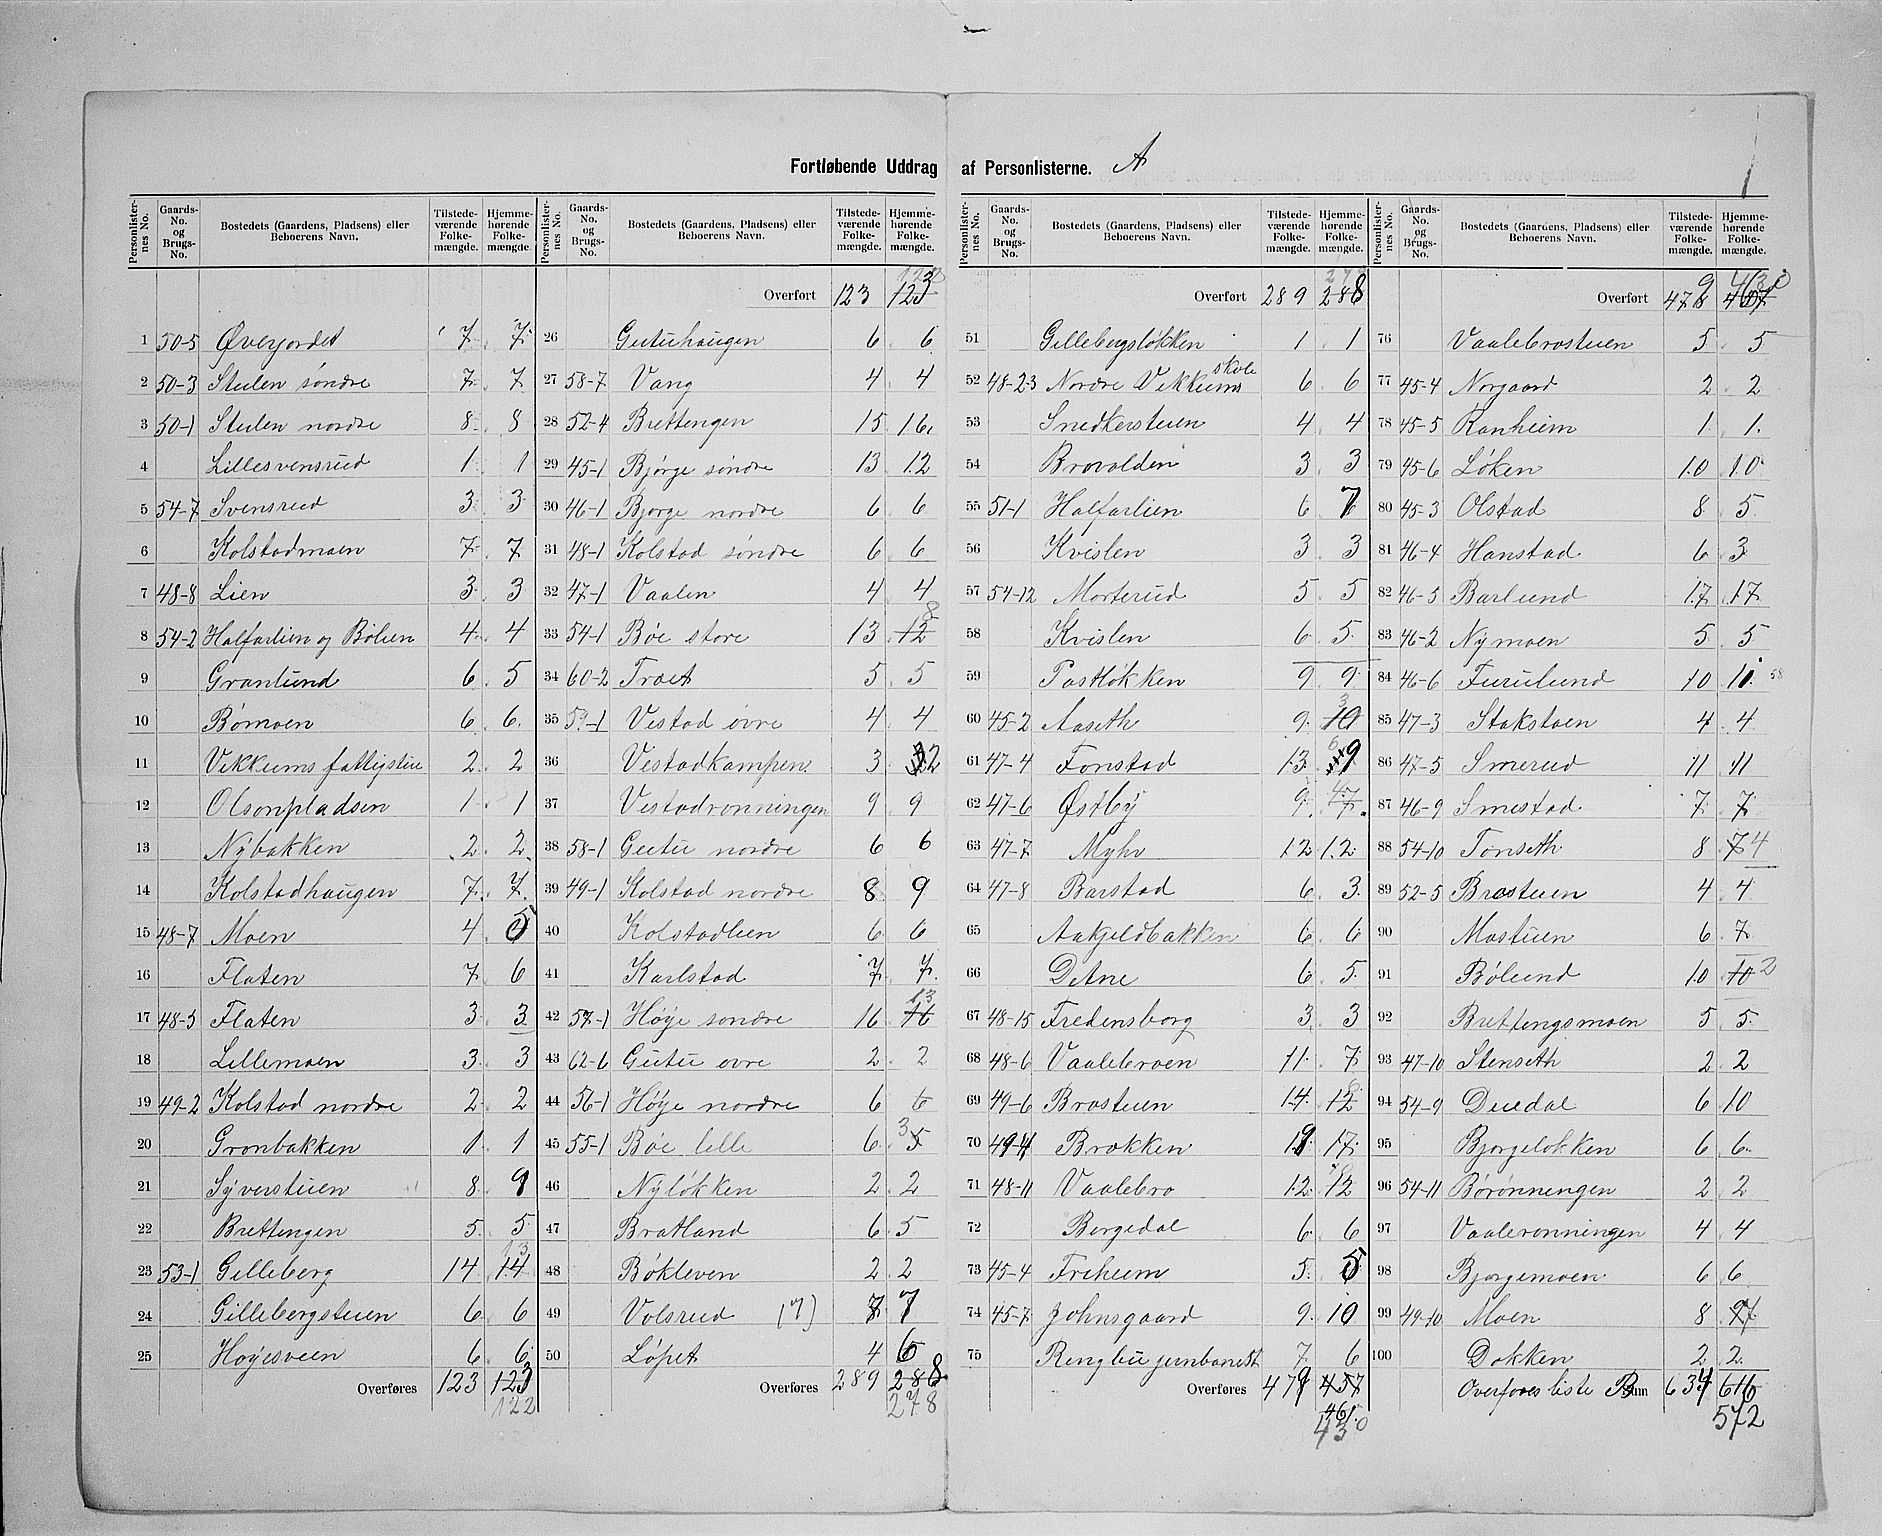 Fortløbende Uddrag af Personlisterne. A
1
Personlister-nes No. Gaards-No. og Brugs-No. Bostedets (Gaardens, Pladsens) eller Beboerens Navn. Tilstede-værende Folke-mængde. Hjemme-hørende Folke-mængde.
1 50-5 Øverjordet 7 7
2 50-3 Stulen søndre 7 7
3 50-1 Stulen nordre 8 8
4 Lillesvensrud 1 1
5 54-7 Svensrud 3 3
6 Kolstadmoen 7 7
7 48-8 Lien 3 3
8 54-2 Halfarlien og Bølien 4 4
9 Granlund 6 5
10 Bømoen 6 6
11 Vekkums fattigstue 2 2
12 Olsonpladsen 1 1
13 Nybakken 2 2
14 Kolstadhaugen 7 7
15 48-7 Moen 4 5
16 Flaten 7 6
17 48-5 Flaten 3 3
18 Lillemoen 3 3
19 49-2 Kolstad nordre 2 2
20 Grønbakken 1 1
21 Syverstuen 8 9
22 Brettengen 5 5
23 53-1 Gilleberg 14 14 13
24 Gillebergstuen 6 6
25 Høyesveen 6 6
Overføres 123 123
122
Personlister-nes No. Gaards-No. og Brugs-No. Bostedets (Gaardens, Pladsens) eller Beboerens Navn. Tilstede-værende Folke-mængde. Hjemme-hørende Folke-mængde.
Overført 123 123
26 Gutuhaugen 6 6
27 58-7 Vang 4 4
28 52-4 Brettengen 15 16
29 45-1 Bjørge søndre 13 12
30 46-1 Bjørge nordre 6 6
31 48-1 Kolstad søndre 6 6
32 47-1 Vaalen 4 4
33 54-1 Bøe store 13 12 8
34 60-2 Traet 5 5
35 59-1 Vestad øvre 4 4
36 Vestadkampen 3 2
37 Vestadrønningen 9 9
38 58-1 Gutu nordre 6 6
39 49-1 Kolstad nordre 8 9
40 Kolstadlien 6 6
41 Karlstad 7 7
42 57-1 Høye søndre 16 16 13
43 62-6 Gutu øvre 2 2
44 56-1 Høye nordre 6 6
45 55-1 Bøe lille 6 3 5
46 Nyløkken 2 2
47 Bratland 6 5
48 Bøkleven 2 2
49 Volsrud (7) 7 7
50 Løpet 4 6
Overføres 289 288
278
Personlister-nes No. Gaards-No. og Brugs-No. Bostedets (Gaardens, Pladsens) eller Beboerens Navn. Tilstede-værende Folke-mængde. Hjemme-hørende Folke-mængde.
Overført 289 288
51 Gillebergsløkken 1 1
52 48-23 Nordre Vekkums skole 6 6
53 Snedkerstuen 4 4
54 Brovolden 3 3
55 51-1 Halfarlien 6 7
56 Kvislen 3 3
57 54-12 Morterud 5 5
58 Kvislen 6 5
59 Postløkken 9 9
60 45-2 Aaseth 9 10 3
61 47-4 Fonstad 13 9
62 47-6 Østby 9 7
63 47-7 Myhr 12 12
64 47-8 Barstad 6 3
65 Aakjeldbakken 6 6
66 Detne 6 5
67 48-15 Fredensborg 3 3
68 48-6 Vaalebroen 11 7
69 49-6 Brostuen 14 12
70 49-4 Brokken 19 17
71 48-11 Vaalebro 12 12
72 Borgedal 6 6
73 45-4 Friheim 5 5
74 45-7 Johnsgaard 9 10
75 Ringbu jernbanest 7 6
Overføres 479 457
461
430
Personlister-nes No. Gaards-No. og Brugs-No. Bostedets (Gaardens, Pladsens) eller Beboerens Navn. Tilstede-værende Folke-mængde. Hjemme-hørende Folke-mængde.
Overført 478 9 457 430
76 Vaalebrostuen 5 5
77 45-4 Norgaard 2 2
78 45-5 Ranheim 1 1
79 45-6 Løken 10 10
80 45-3 Olstad 8 5
81 46-4 Hanstad 6 3
82 46-5 Barlund 17 17
83 46-2 Nymoen 5 5
84 46-6 Furulund 10 11 58
85 47-3 Stakstoen 4 4
86 47-5 Smerud 11 11
87 46-9 Smestad 7 7
88 54-10 Tonseth 8 7 4
89 52-5 Brostuen 4 4
90 Mostuen 6 7
91 Bølund 10 10 2
92 Brettengsmoen 5 5
93 47-10 Stenseth 2 2
94 54-9 Duedal 6 10
95 Bjørgeløkken 6 6
96 54-11 Børønningen 2 2
97 Vaalerønningen 4 4
98 Bjørgemoen 6 6
99 49-10 Moen 8 7
100 Dokken 2 2
Overføres liste B 634 616
572